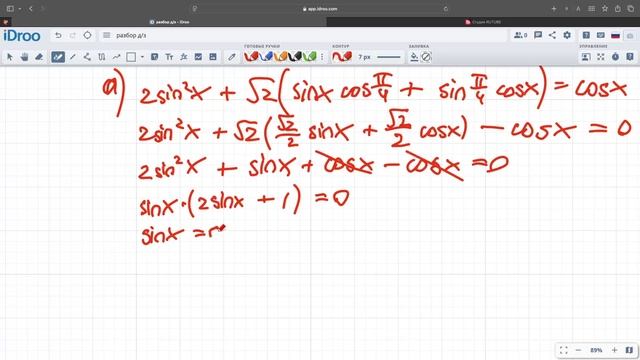 app.idroo.com
разбор д/з – iDroo
Студия RUTUBE
iDroo
разбор д/з
ГОТОВЫЕ РУЧКИ
КОНТУР
РАЗМЕР
ДЕЙСТВИЯ
УПРАВЛЕНИЕ
7 px
0
а) 2sin²x + √2(sinx cos π/4 + sin π/4 cosx) = cosx
2sin²x + √2(√2/2 sinx + √2/2 cosx) − cosx = 0
2sin²x + sinx + cosx − cosx = 0
sinx·(2sinx + 1) = 0
sinx =
89%